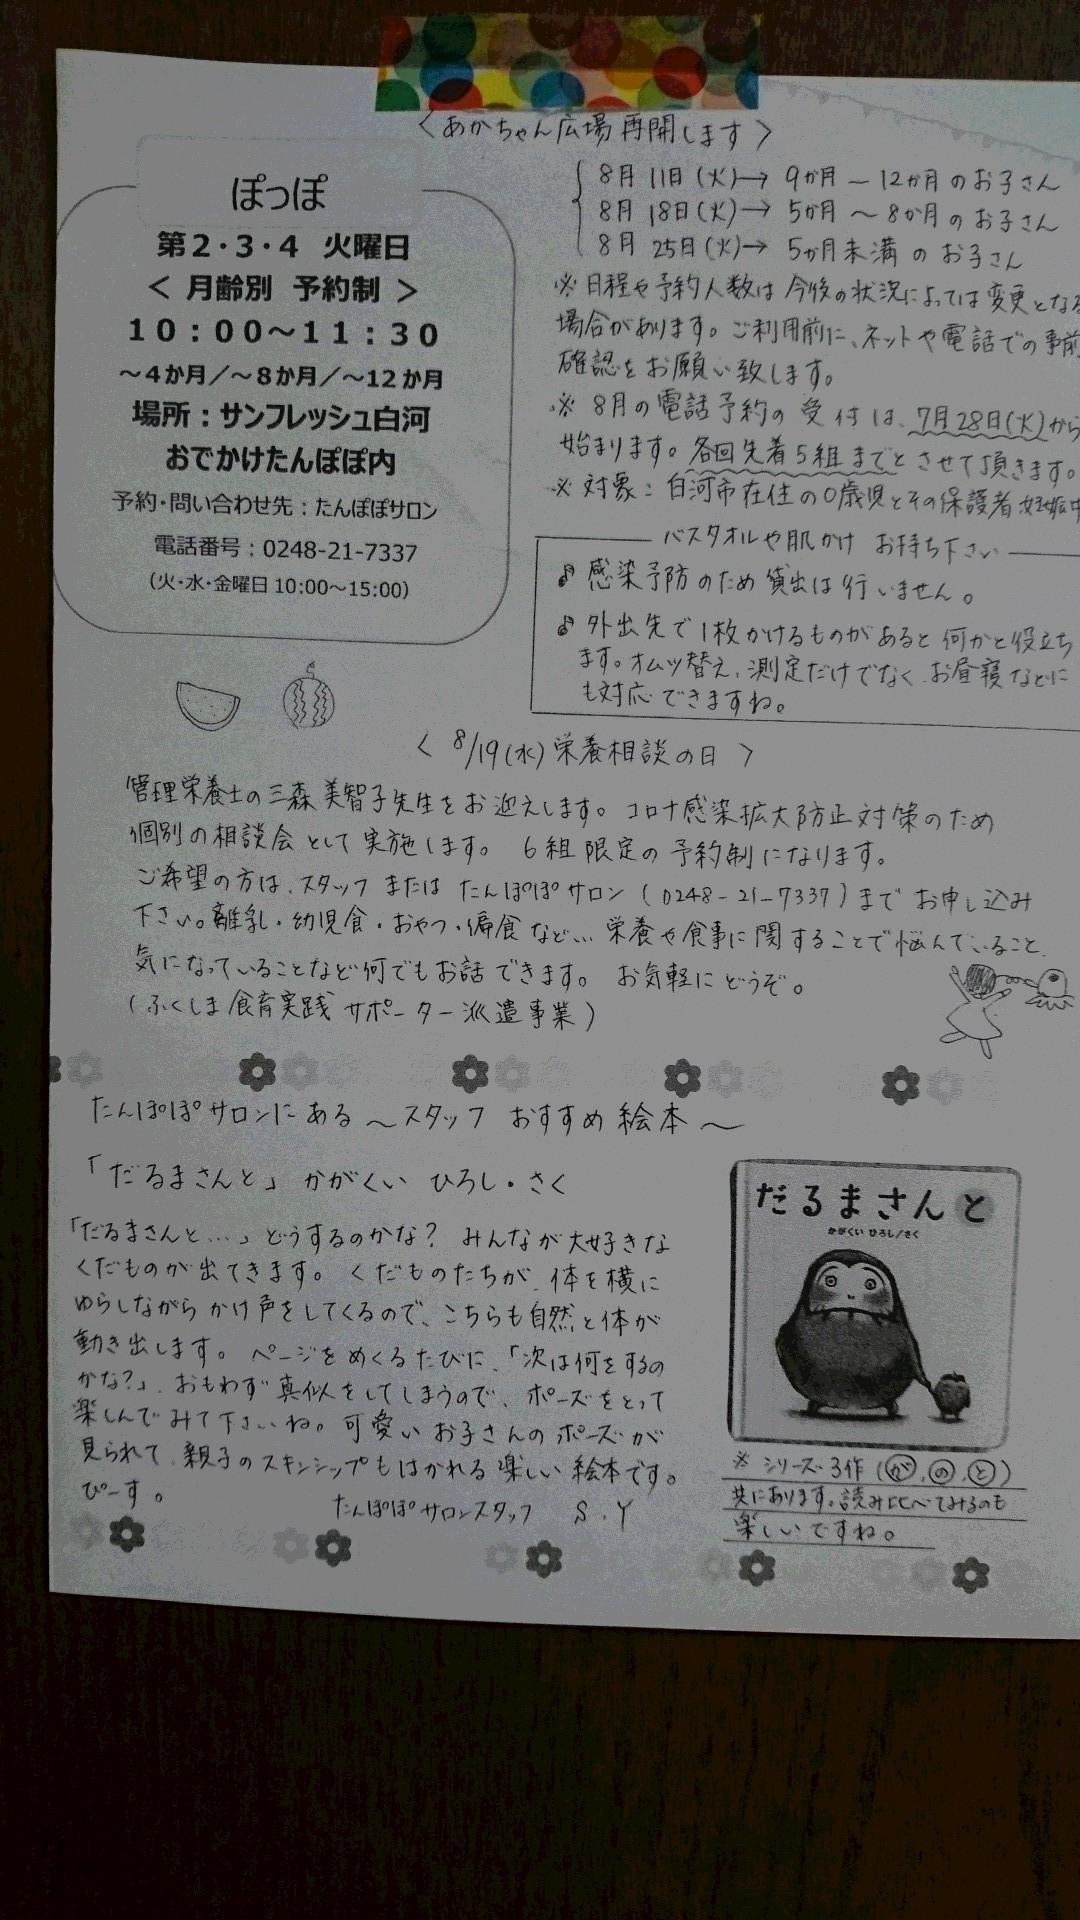 ぽっぽ
第2・3・4 火曜日
＜ 月齢別 予約制 ＞
10：00～11：30
～4か月／～8か月／～12か月
場所：サンフレッシュ白河
おでかけたんぽぽ内
予約・問い合わせ先：たんぽぽサロン
電話番号：0248-21-7337
（火・水・金曜日 10:00～15:00）
〈 あかちゃん広場 再開します 〉
8月 11日(火)→ 9か月 ～ 12か月 のお子さん
8月 18日(火)→ 5か月 ～ 8か月 のお子さん
8月 25日(火)→ 5か月未満 の お子さん
※ 日程や予約人数は 今後の状況によっては 変更となる
場合があります。ご利用前に、ネットや電話での事前
確認をお願い致します。
※ 8月の電話予約の 受付は、7月28日(火)から
始まります。各回先着5組までとさせて頂きます。
※ 対象：白河市在住の0歳児とその保護者 妊娠中
バスタオルや肌かけ お持ち下さい
♪ 感染予防のため 貸出は行いません。
♪ 外出先で 1枚かけるものがあると 何かと役立ち
ます。オムツ替え、測定だけでなく、お昼寝などに
も対応できますね。
〈 8/19(水) 栄養相談の日 〉
管理栄養士の三森 美智子先生をお迎えします。コロナ感染拡大防止対策のため
個別の相談会として実施します。 6組限定の予約制になります。
ご希望の方は、スタッフ または たんぽぽサロン (0248-21-7337) まで お申し込み
下さい。離乳・幼児食・おやつ・偏食など… 栄養や食事に関することで悩んでいること、
気になっていることなど何でもお話できます。 お気軽にどうぞ。
(ふくしま食育実践サポーター派遣事業)
たんぽぽサロンにある ～スタッフ おすすめ 絵本～
「だるまさんと」 かがくい ひろし・さく
「だるまさんと…」どうするのかな？ みんなが大好きな
くだものが出てきます。くだものたちが、体を横に
ゆらしながら かけ声をしてくるので、こちらも自然と体が
動き出します。ページをめくるたびに、「次は何をするの
かな？」、おもわず真似をしてしまうので、ポーズをとって
楽しんでみて下さいね。可愛いお子さんのポーズが
見られて、親子のスキンシップもはかれる楽しい絵本です。
ぴーす。
たんぽぽサロンスタッフ S.Y
だるまさんと
かがくい ひろし/さく
※ シリーズ3作(が、の、と)
共にあります。読み比べてみるのも
楽しいですね。